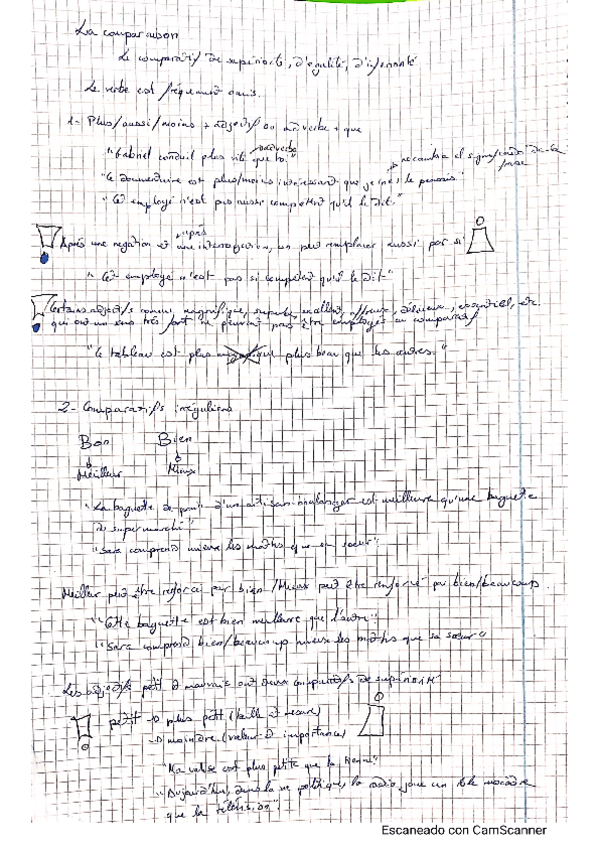 La comparaison
Le comparatif de supériorité, d'égalité, d'infériorité
Le verbe est fréquement omis.
1- Plus/aussi/moins + adjectif ou adverbe + que
adverbe
"Gabriel conduit plus vite que toi."
no cambia el significado de la frase
"Ce documentaire est plus/moins intéressant que je (ne) le pensais"
"Cet employé n'est pas aussi compétent qu'il le dit."
après
Après une negation et une interrogation, on peut remplacer aussi par si
"Cet employé n'est pas si compétent qu'il le dit"
Certains adjectifs comme, magnifique, superbe, excellent, affreux, délicieux, essentiel, etc
qui ont un sens très fort ne peuvent pas être employés au comparatif
"Ce tableau est plus magnifique plus beau que les autres."
2- Comparatifs irréguliers
Bon Bien
Meilleur Mieux
"La baguette de pain d'un artisan boulanger est meilleure qu'une baguette
de supermarché"
"Sara comprend mieux les maths que sa sœur"
Meilleur peut être renforcé par bien / Mieux peut être renforcé par bien/beaucoup.
"Cette baguette est bien meilleure que l'autre"
"Sara comprend bien/beaucoup mieux les maths que sa sœur"
Les adjectifs petit et mauvais ont deux comparatifs de supériorité
petit → plus petit (taille et mesure)
→ moindre (valeur et importance)
"Ma valise est plus petite que la tienne"
"Aujourd'hui, dans la vie politique, la radio joue un rôle moindre
que la télévision"
Escaneado con CamScanner